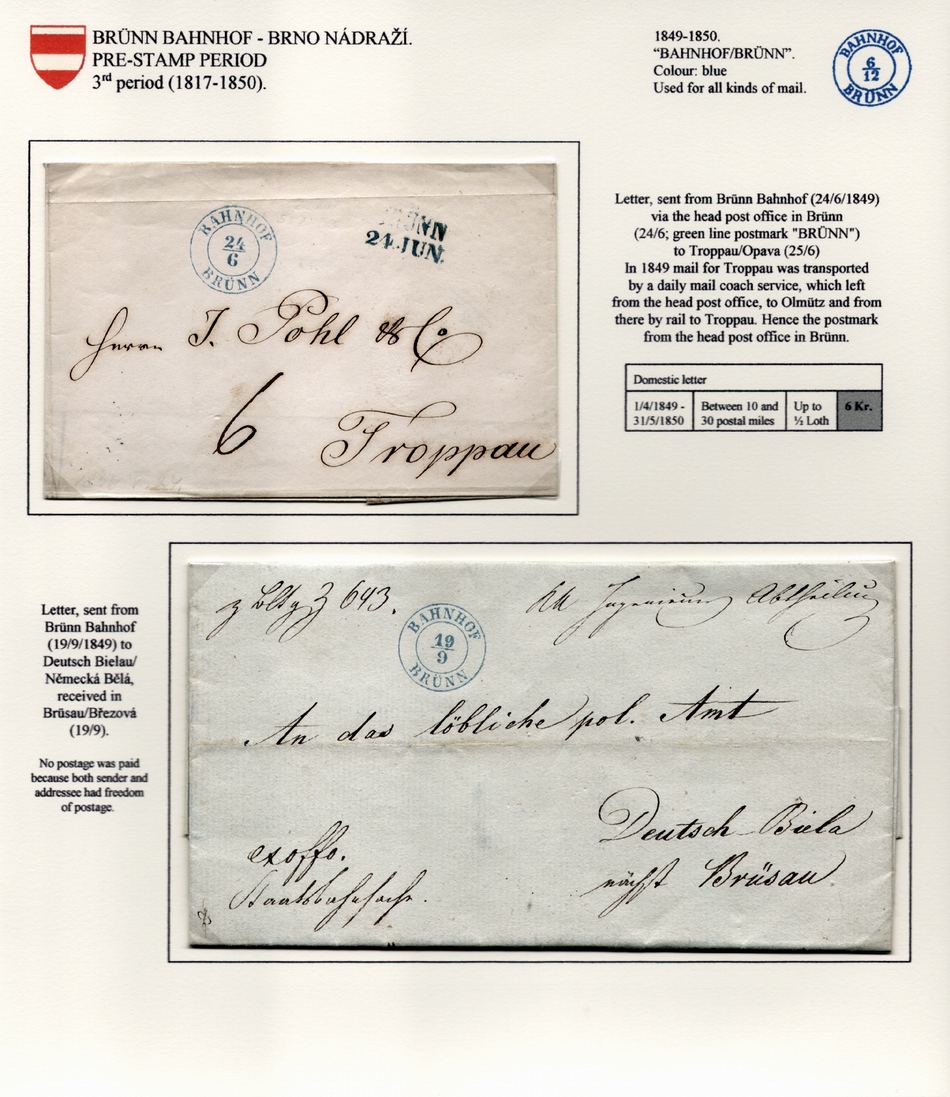 BRÜNN BAHNHOF - BRNO NÁDRAŽÍ.
PRE-STAMP PERIOD
3rd period (1817-1850).
1849-1850.
“BAHNHOF/BRÜNN”.
Colour: blue
Used for all kinds of mail.
BAHNHOF
6
12
BRÜNN
BAHNHOF
24
6
BRÜNN
BRÜNN
24.JUN.
Herrn J. Pohl & Co
6
Troppau
Letter, sent from Brünn Bahnhof (24/6/1849)
via the head post office in Brünn
(24/6; green line postmark "BRÜNN")
to Troppau/Opava (25/6)
In 1849 mail for Troppau was transported
by a daily mail coach service, which left
from the head post office, to Olmütz and from
there by rail to Troppau. Hence the postmark
from the head post office in Brünn.
Domestic letter
1/4/1849 -
31/5/1850
Between 10 and
30 postal miles
Up to
½ Loth
6 Kr.
Letter, sent from
Brünn Bahnhof
(19/9/1849) to
Deutsch Bielau/
Německá Bělá,
received in
Brüsau/Březová
(19/9).
No postage was paid
because both sender and
addressee had freedom
of postage.
643.
Abtheilung
BAHNHOF
19
9
BRÜNN
An das löbliche pol. Amt
Deutsch Biela
nächst Brüsau
exoffo.
Staatsbahnsache.